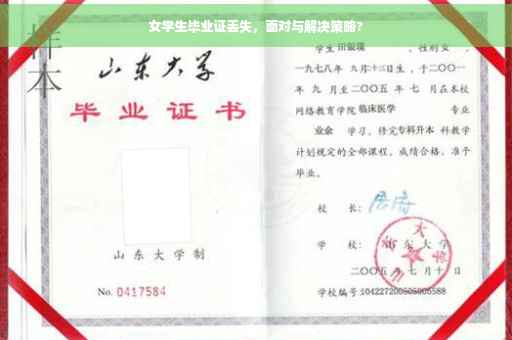 女学生毕业证丢失，面对与解决策略？
样本
山东大学
毕业证书
山东大学制
No. 0417584
学生 田银瑞 ，性别 女 ，
一九七八年 九月十二日生，于二〇〇一
年 九 月至二〇〇五 年 七 月在本校
网络教育学院 临床医学 专业
业余 学习，修完 专科升本 科教学
计划规定的全部课程，成绩合格，准予
毕业。
校 长：
学 校：山东大学
二〇〇五 年 七 月 十 日
学校编号：104227200505005588